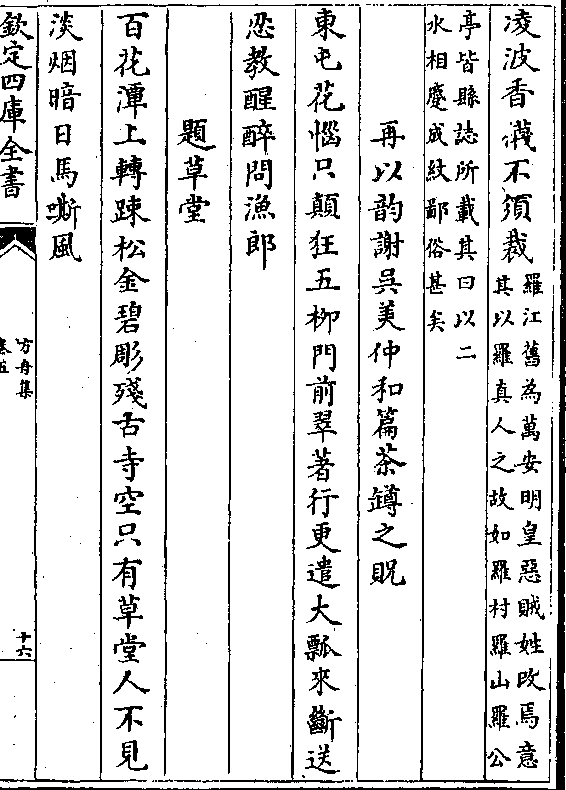 凌波香襪不須裁羅江舊為萬安明皇惡賊姓改焉意
其以羅真人之故如羅村羅山羅公
亭皆縣誌所載其曰以二
水相蹙成紋鄙俗甚矣
再以韵謝吳美仲和篇茶罇之貺
東屯花惱只顛狂五栁門前翠著行更遣大瓢來斷送
忍教醒醉問漁郎
題草堂
百花潭上轉踈松金碧彫殘古寺空只有草堂人不見
淡烟暗日馬嘶風
欽定四庫全書
方舟集
卷五
十六